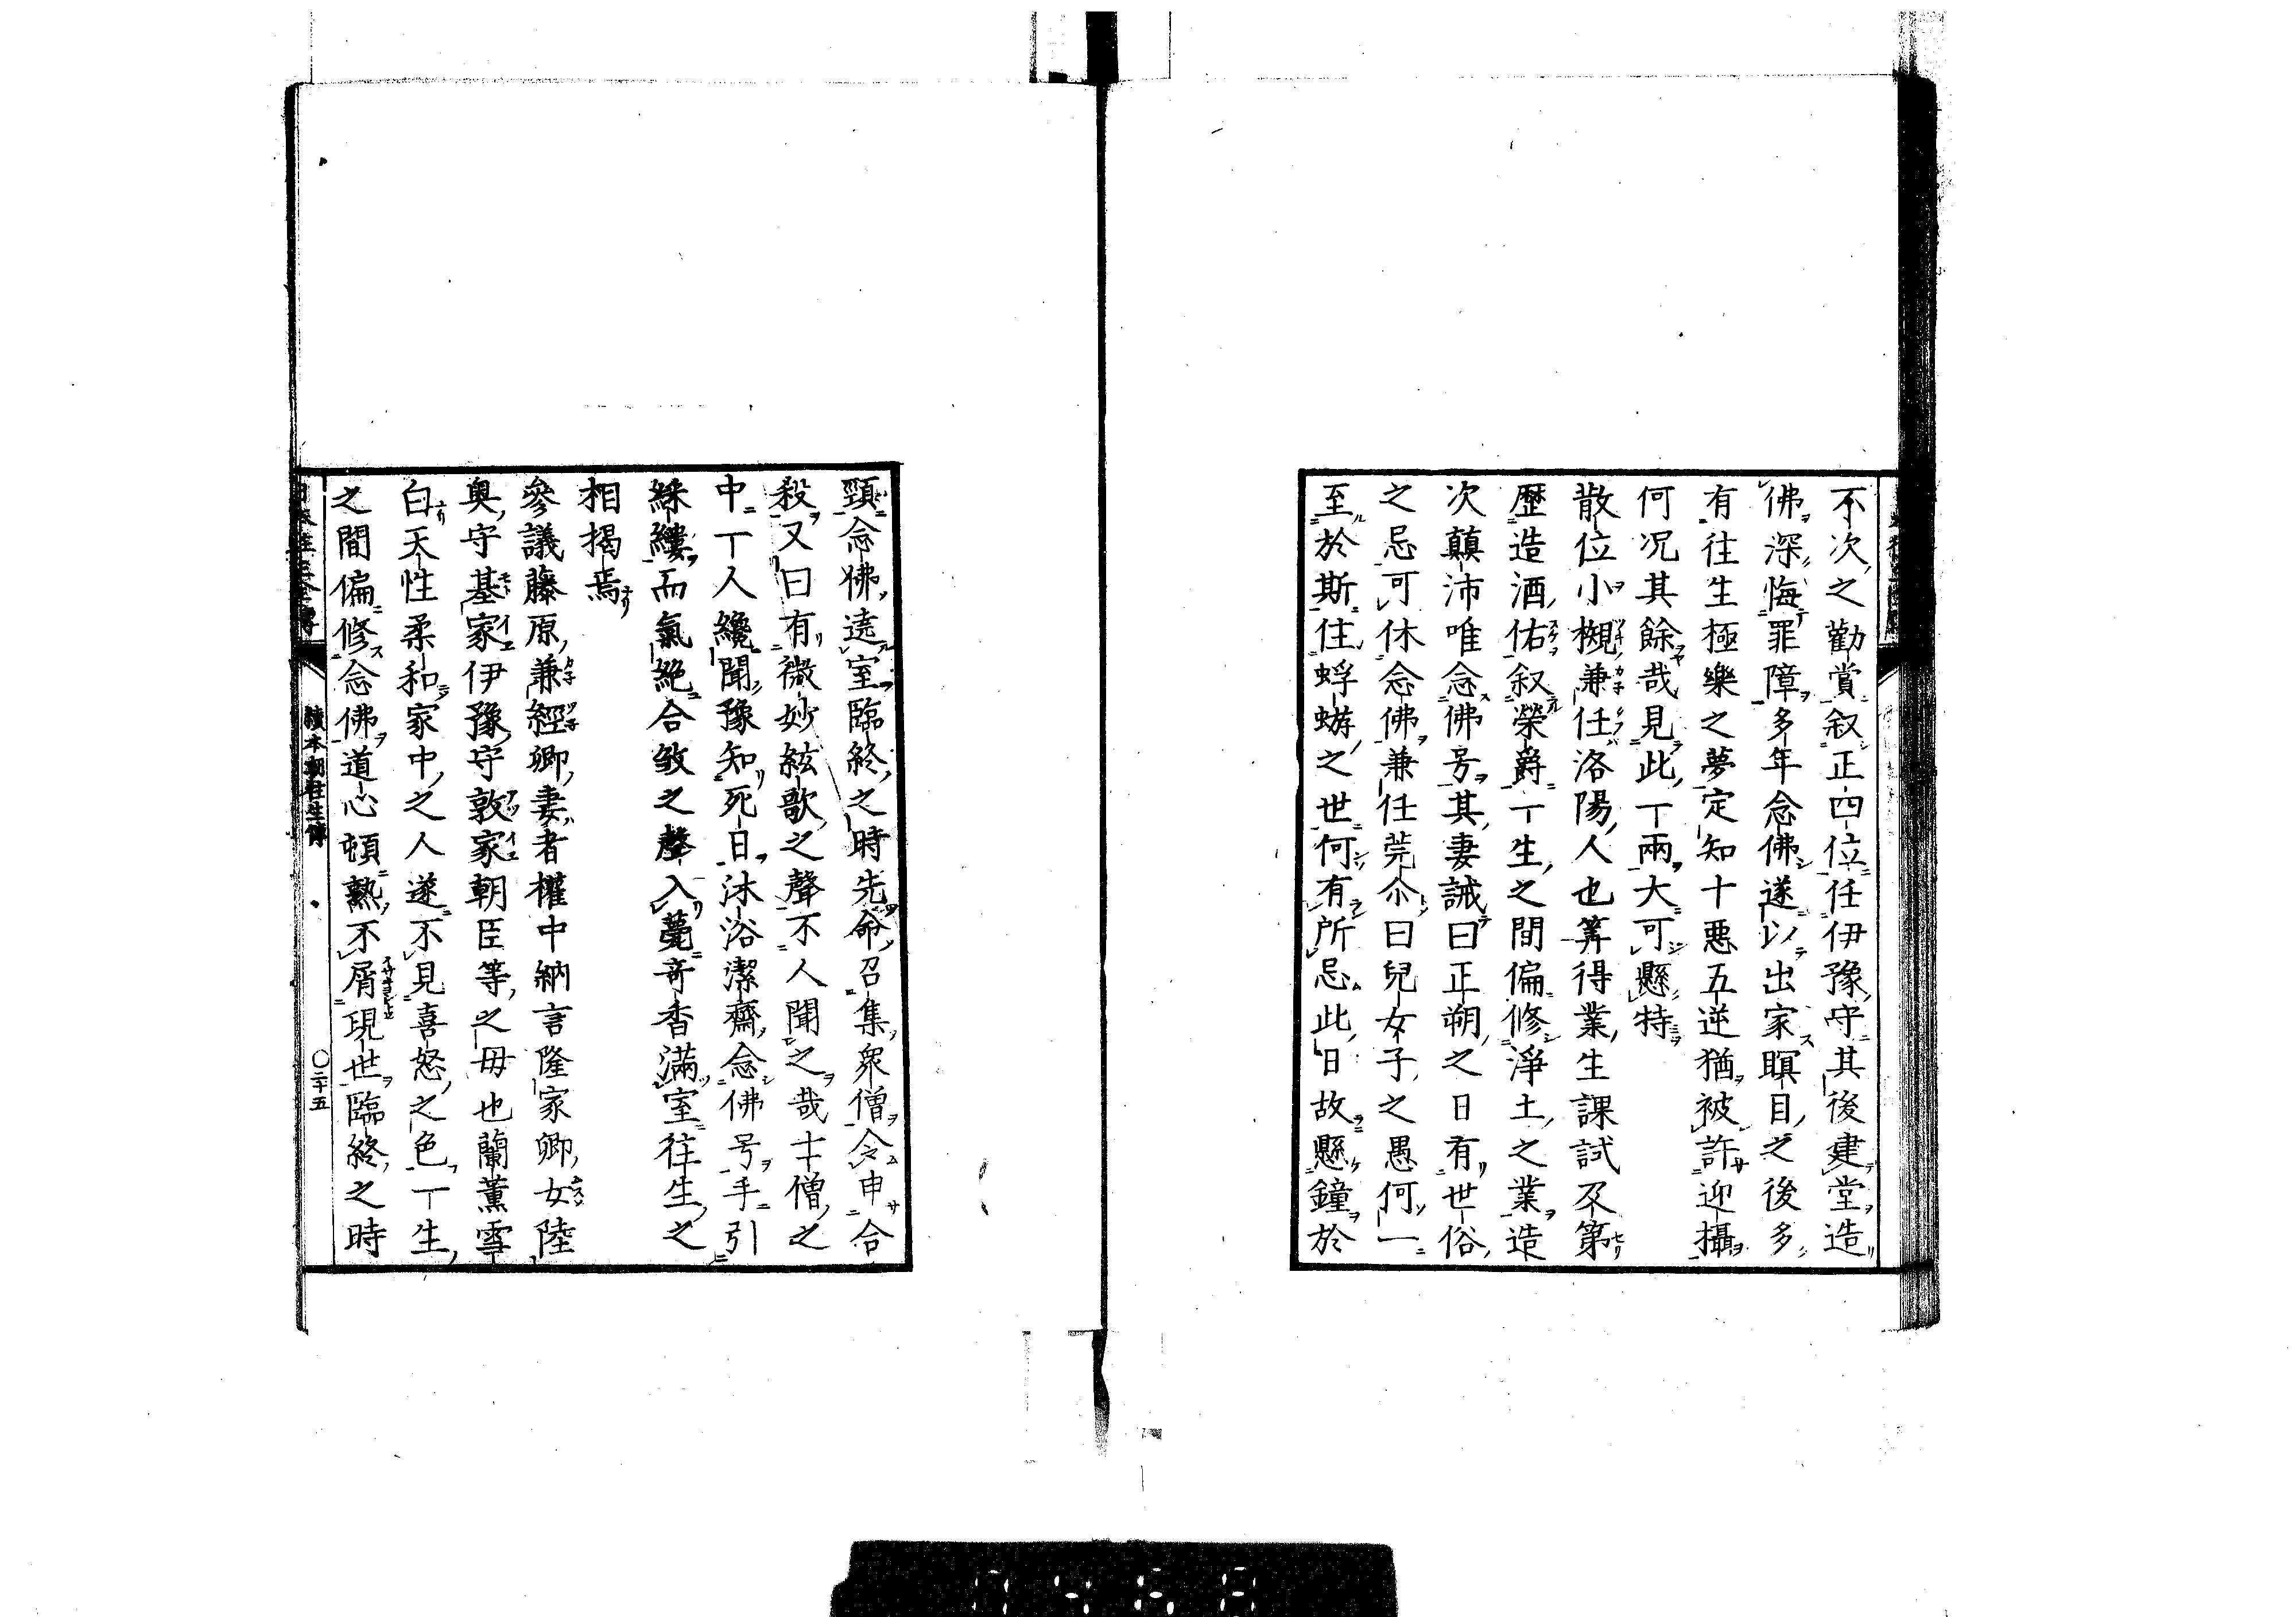 不次之勸賞叙正四位任伊豫守其後建堂造
佛深悔罪障多年念佛遂以出家瞑目之後多
有往生極樂之夢定知十惡五逆猶被許迎攝
何况其餘哉見此一兩大可懸特
散位小槻兼任洛陽人也筭得業生課試及第
歷造酒佑叙榮爵一生之間偏修淨土之業造
次顛沛唯念佛号其妻誡曰正朔之日有世俗
之忌可休念佛兼任莞尒曰兒女子之愚何一
至於斯住蜉蝣之世何有所忌此日故懸鐘於
頸念佛遶室臨終之時先命召集衆僧令申合
殺又曰有微妙絃歌之聲不人聞之哉十僧之
中一人纔聞豫知死日沐浴潔齋念佛号手引
綵縷而氣絶合殺之聲入薨奇香滿室往生之
相揭焉
參議藤原兼經卿妻者權中納言隆家卿女陸
奥守基家伊豫守敦家朝臣等之母也蘭薰雪
白天性柔和家中之人遂不見喜怒之色一生
之間偏修念佛道心頓熟不屑現世臨終之時
續本朝往生傳
〇二十五